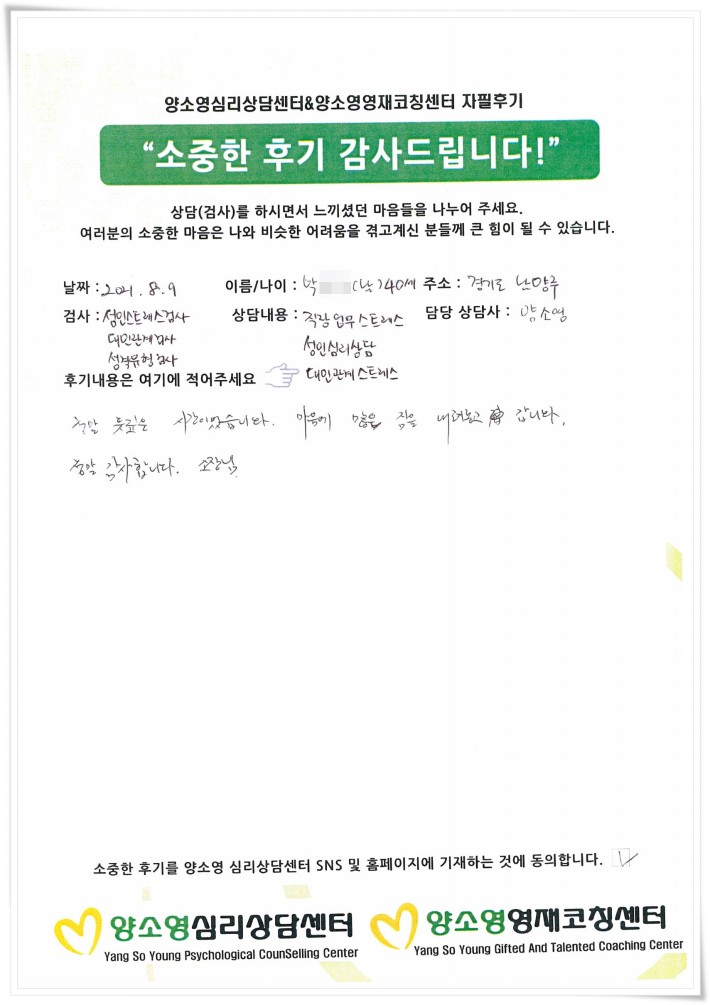 양소영심리상담센터&양소영영재코칭센터 자필후기
“소중한 후기 감사드립니다!”
상담(검사)를 하시면서 느끼셨던 마음들을 나누어 주세요.
여러분의 소중한 마음은 나와 비슷한 어려움을 겪고계신 분들께 큰 힘이 될 수 있습니다.
날짜 : 2021. 8. 9 이름/나이 : 박 (남) 40세 주소 : 경기도 남양주
검사 : 성인스트레스검사 상담내용 : 직장업무스트레스 담당 상담사 : 양소영
대인관계검사 성인심리상담
성격유형검사
후기내용은 여기에 적어주세요 대인관계스트레스
정말 뜻깊은 시간이었습니다. 마음에 많은 짐을 내려놓고 갑니다.
정말 감사합니다. 소장님
소중한 후기를 양소영 심리상담센터 SNS 및 홈페이지에 기재하는 것에 동의합니다.
양소영심리상담센터 양소영영재코칭센터
Yang So Young Psychological CounSelling Center Yang So Young Gifted And Talented Coaching Center